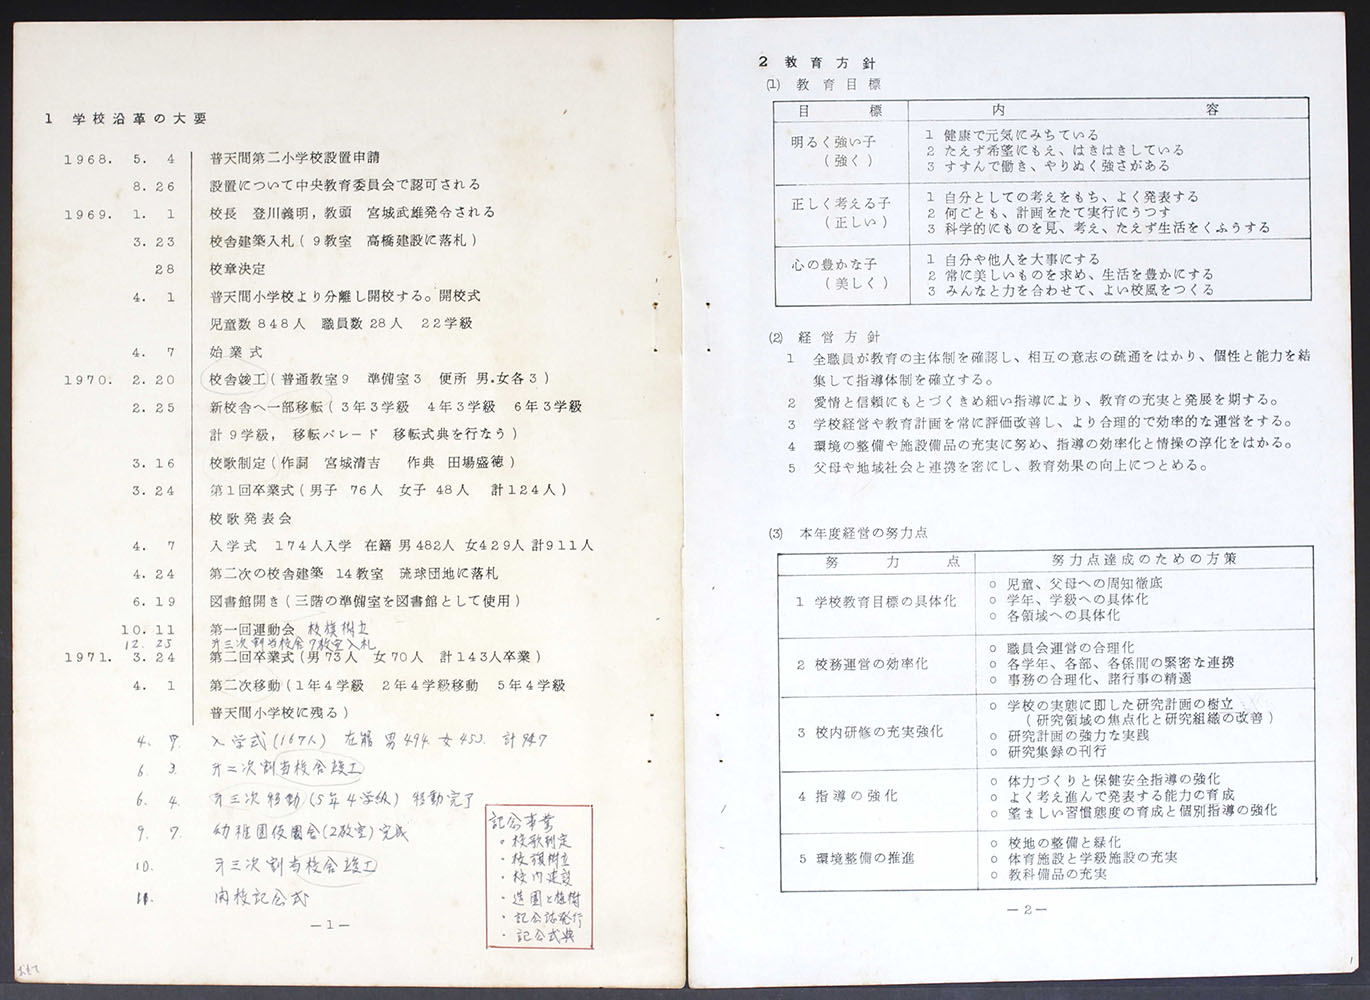 1 学校沿革の大要
1968. 5. 4 普天間第二小学校設置申請
8. 26 設置について中央教育委員会で認可される
1969. 1. 1 校長 登川義明,教頭 宮城武雄発令される
3. 23 校舎建築入札(9教室 高橋建設に落札)
28 校章決定
4. 1 普天間小学校より分離し開校する。開校式
児童数848人 職員数28人 22学級
4. 7 始業式
1970. 2. 20 校舎竣工(普通教室9 準備室3 便所 男.女各3)
2. 25 新校舎へ一部移転(3年3学級 4年3学級 6年3学級
計9学級, 移転パレード 移転式典を行なう)
3. 16 校歌制定(作詞 宮城清吉 作典 田場盛徳)
3. 24 第1回卒業式(男子 76人 女子 48人 計124人)
校歌発表会
4. 7 入学式 174人入学 在籍 男482人 女429人 計911人
4. 24 第二次の校舎建築 14教室 琉球団地に落札
6. 19 図書館開き(三階の準備室を図書館として使用)
10. 11 第一回運動会 校旗樹立
12. 25 才三次割当校舎7教室入札
1971. 3. 24 第二回卒業式(男73人 女70人 計143人卒業)
4. 1 第二次移動(1年4学級 2年4学級移動 5年4学級
普天間小学校に残る)
4. 7. 入学式(167人) 在籍 男494. 女453. 計947
6. 3. 才二次割当校舎竣工
6. 4. 才三次移動(5年4学級) 移動完了
9. 7. 幼稚園仮園舎(2教室)完成
10. 才三次割当校舎竣工
11. 内校記念式
記念事業
○ 校歌制定
・ 校旗樹立
・ 校内建設
・ 造園と植樹
・ 記念誌発行
・ 記念式典
—1—
2 教育方針
(1) 教育目標
目標 内容
明るく強い子
(強く)
1 健康で元気にみちている
2 たえず希望にもえ、はきはきしている
3 すすんで働き、やりぬく強さがある
正しく考える子
(正しい)
1 自分としての考えをもち、よく発表する
2 何ごとも、計画をたて実行にうつす
3 科学的にものを見、考え、たえず生活をくふうする
心の豊かな子
(美しく)
1 自分や他人を大事にする
2 常に美しいものを求め、生活を豊かにする
3 みんなと力を合わせて、よい校風をつくる
(2) 経営方針
1 全職員が教育の主体制を確認し、相互の意志の疏通をはかり、個性と能力を結
集して指導体制を確立する。
2 愛情と信頼にもとづくきめ細い指導により、教育の充実と発展を期する。
3 学校経営や教育計画を常に評価改善し、より合理的で効率的な運営をする。
4 環境の整備や施設備品の充実に努め、指導の効率化と情操の淳化をはかる。
5 父母や地域社会と連携を密にし、教育効果の向上につとめる。
(3) 本年度経営の努力点
努力点 努力点達成のための方策
1 学校教育目標の具体化
○ 児童、父母への周知徹底
○ 学年、学級への具体化
○ 各領域への具体化
2 校務運営の効率化
○ 職員会運営の合理化
○ 各学年、各部、各係間の緊密な連携
○ 事務の合理化、諸行事の精選
3 校内研修の充実強化
○ 学校の実態に即した研究計画の樹立
(研究領域の焦点化と研究組織の改善)
○ 研究計画の強力な実践
○ 研究集録の刊行
4 指導の強化
○ 体力づくりと保健安全指導の強化
○ よく考え進んで発表する能力の育成
○ 望ましい習慣態度の育成と個別指導の強化
5 環境整備の推進
○ 校地の整備と緑化
○ 体育施設と学級施設の充実
○ 教科備品の充実
—2—